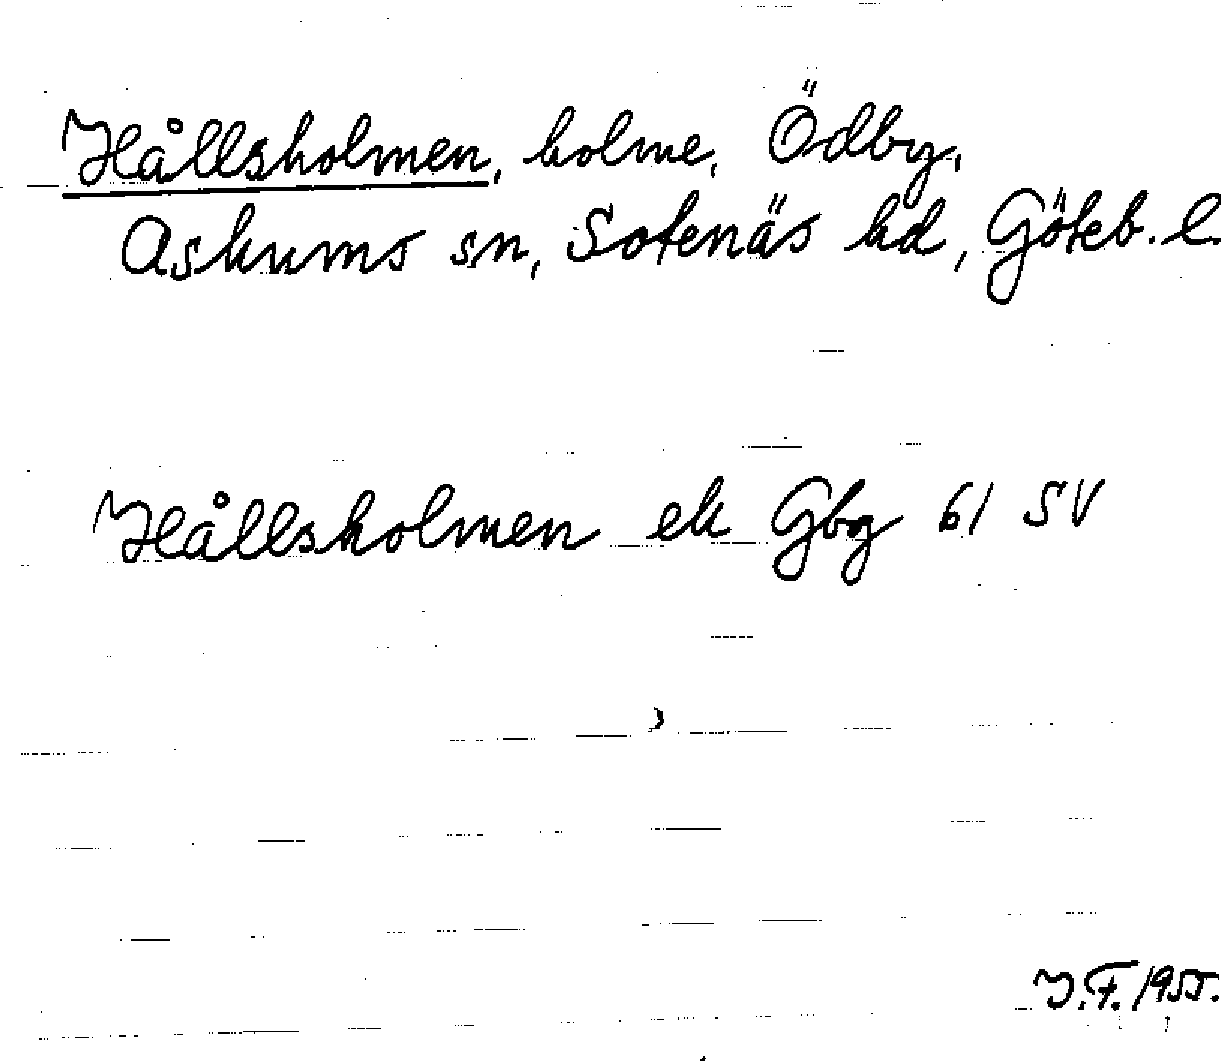 Hållsholmen, holme, Ödby,
Askums sn, Sotenäs hd, Göteb. l.
Hållsholmen ek Gbg 61 SV
I.F. 1955.